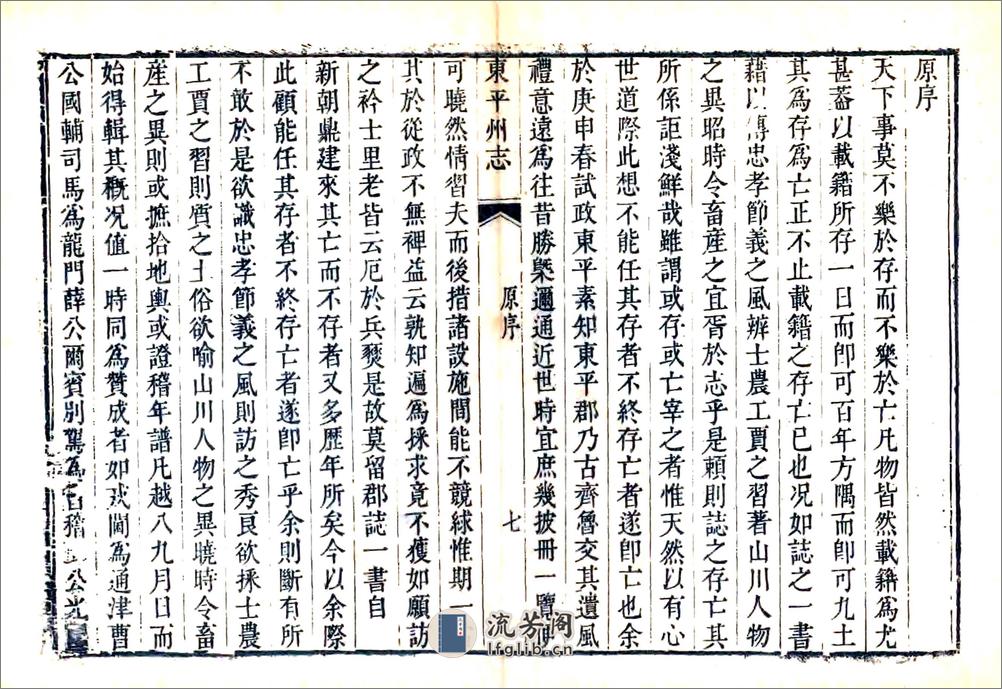 原序
天下事莫不樂於存而不樂於亡凡物皆然載籍爲尤
甚蓄以載籍所存一日而卽可百年方隅而卽可九土
其爲存爲亡正不止載籍之存亡已也况如誌之一書
藉以傳忠孝節義之風辨士農工賈之習著山川人物
之異昭時令畜産之宜胥於志乎是賴則誌之存亡其
所係詎淺鮮哉雖謂或存或亡宰之者惟天然以有心
世道際此想不能任其存者不終存亡者遂卽亡也余
於庚申春試政東平素知東平郡乃古齊魯交其遺風
禮意遠爲往昔勝槩邇通近世時宜庶幾披冊一覽便
東平州志
原序
七
可曉然情習夫而後措諸設施間能不競絿惟期一
其於從政不無裨益云孰知遍爲採求竟不獲如願訪
之衿士里老皆云厄於兵燹是故莫留郡誌一書自
新朝鼎建來其亡而不存者又多歷年所矣今以余際
此顧能任其存者不終存亡者遂卽亡乎余則斷有所
不敢於是欲識忠孝節義之風則訪之秀良欲採士農
工賈之習則質之土俗欲喻山川人物之異曉時令畜
産之異則或摭拾地輿或證稽年譜凡越八九月日而
始得輯其槪况值一時同爲贊成者如戎閫爲通津曹
公國輔司馬爲龍門薛公爾賓別駕爲會稽
流芳阁
lfglib.cn